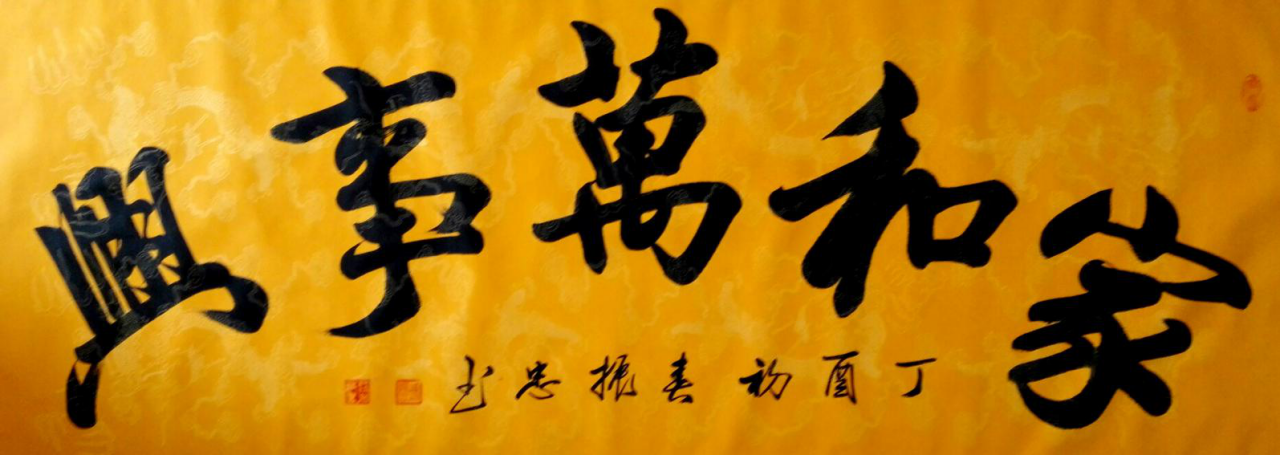 家和萬事興
丁酉初春振忠书